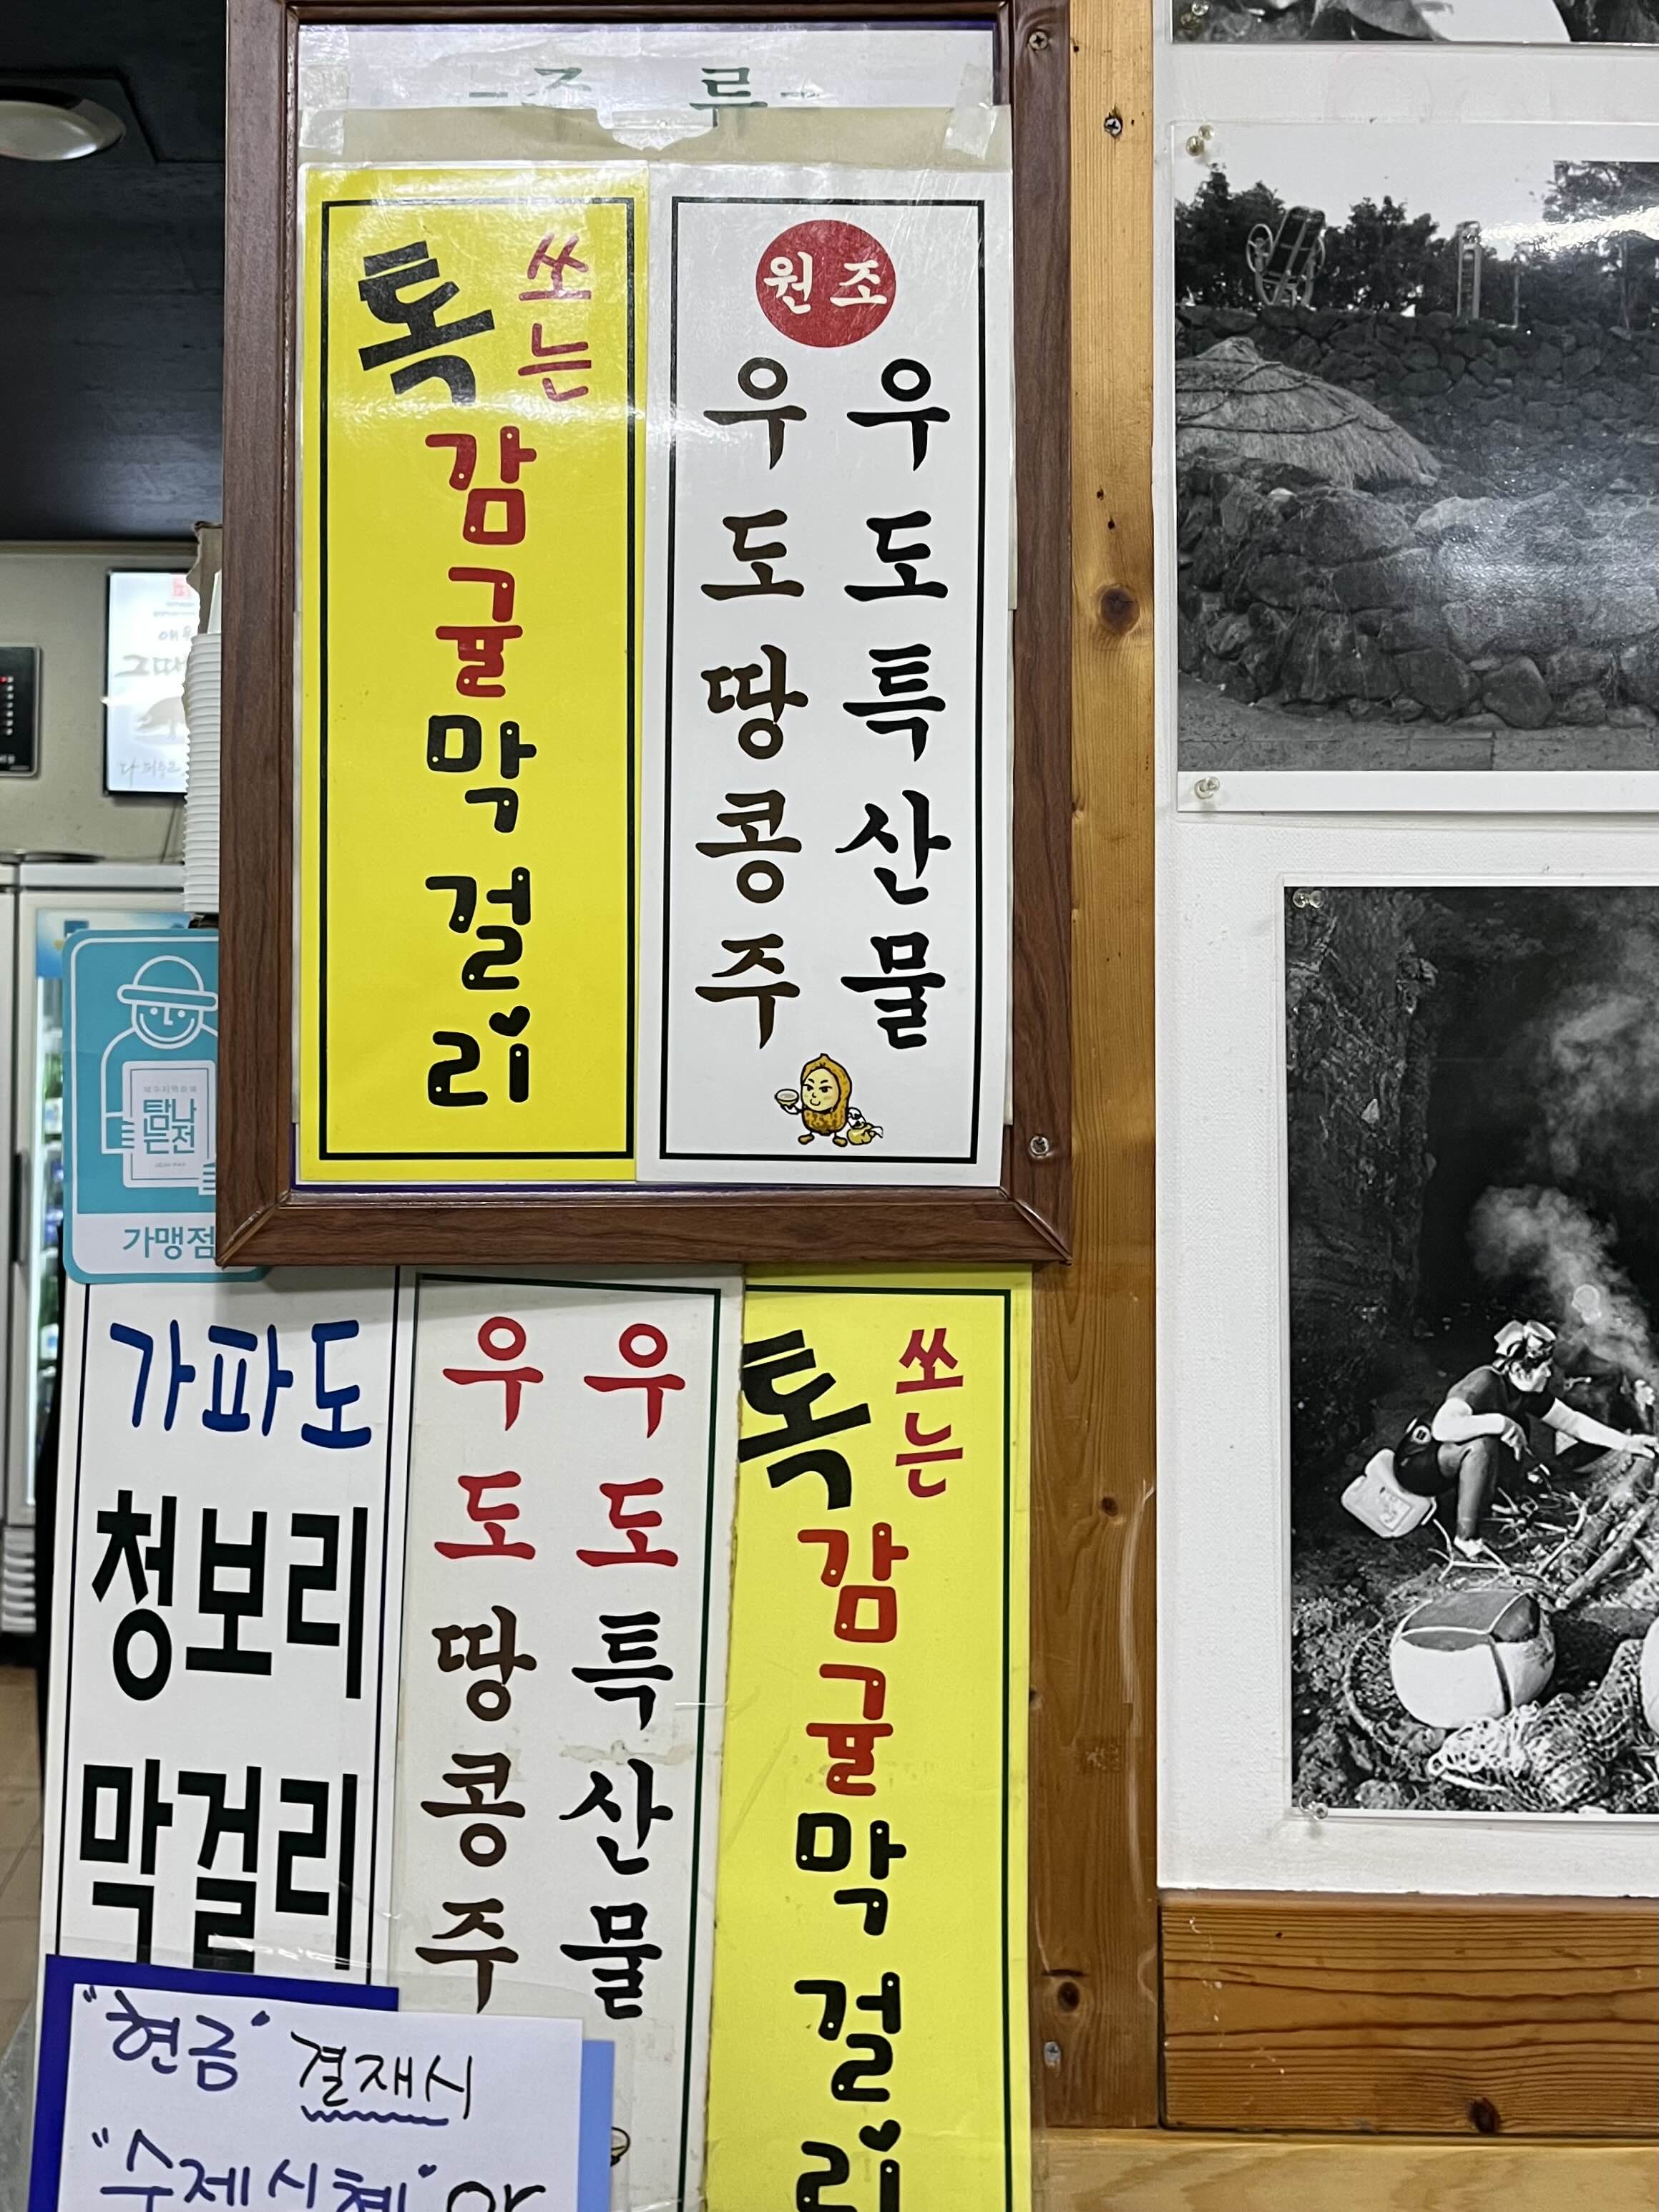 주 류
톡 쏘는
감귤막걸리
원조
우도특산물
우도땅콩주
탐나
는전
가맹점
가파도
청보리
막걸리
우도특산물
우도땅콩주
톡 쏘는
감귤막걸리
"현금" 결재시
"수제시헤" or